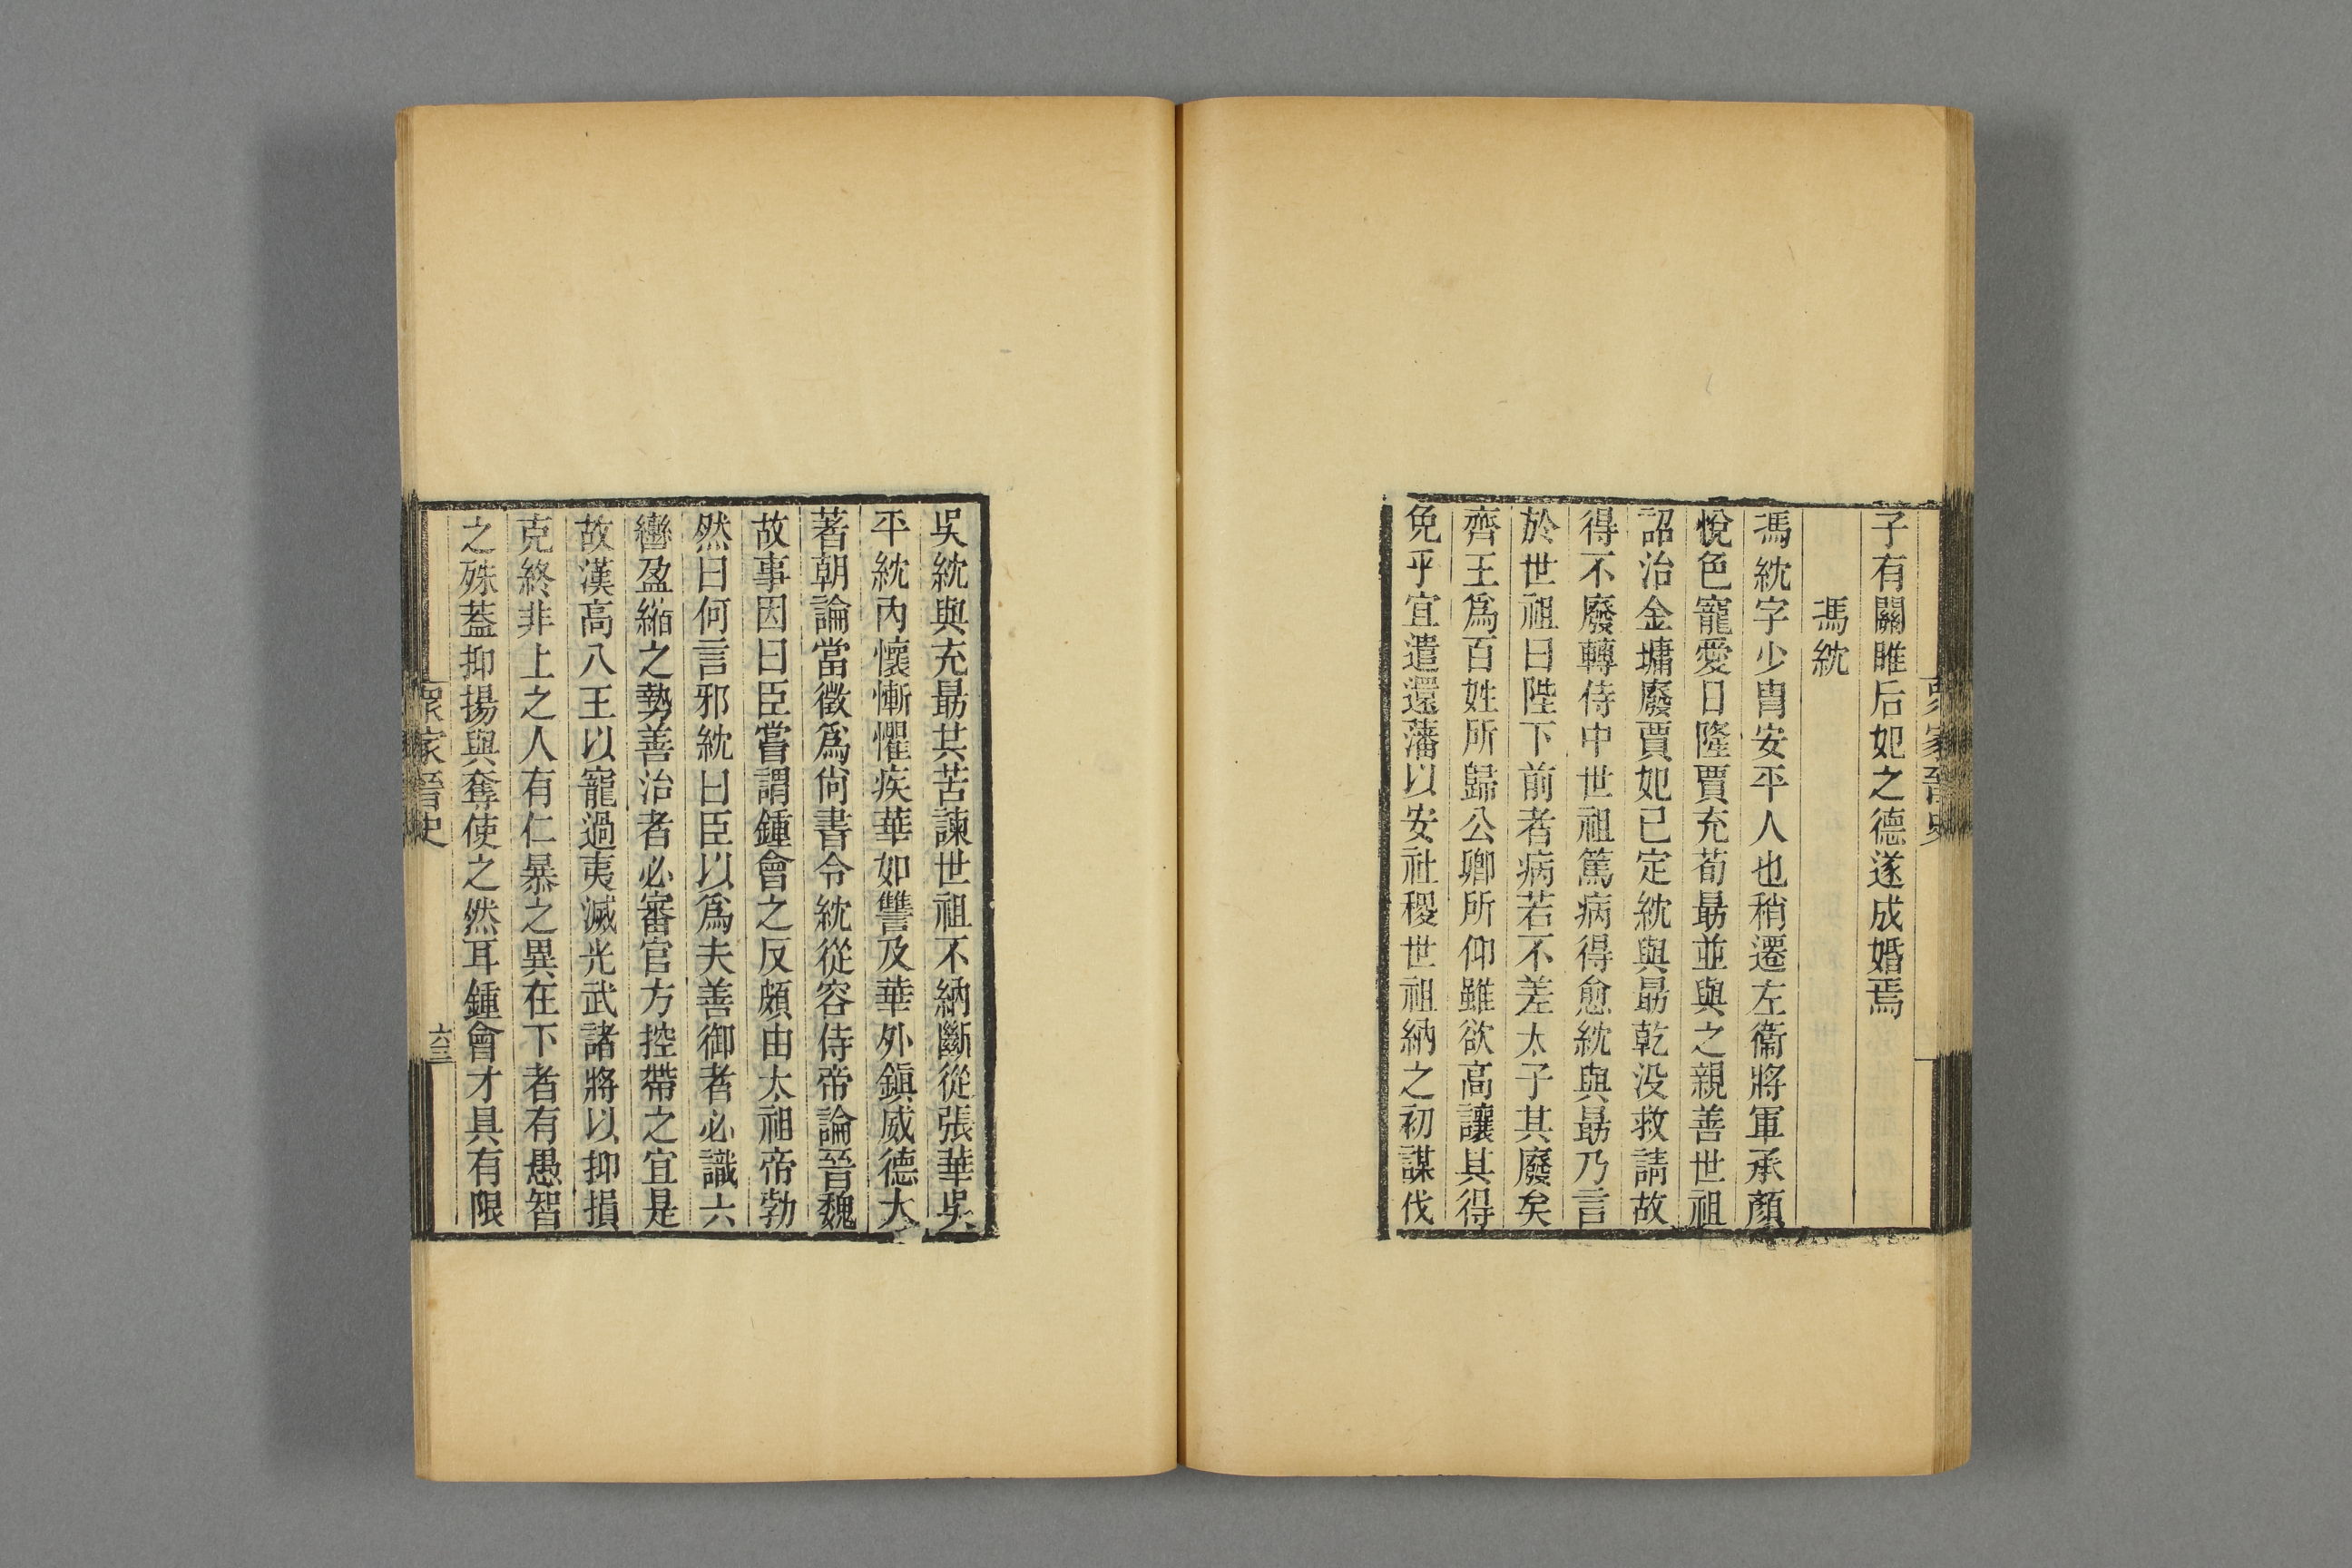 子有關雎后妃之德遂成婚焉
馮紞
馮紞字少胄安平人也稍遷左衞將軍承顏
悅色寵愛日隆賈充荀勗並與之親善世祖
詔治金墉廢賈妃已定紞與勗乾没救請故
得不廢轉侍中世祖篤病得愈紞與勗乃言
於世祖曰陛下前者病若不差太子其廢矣
齊王爲百姓所歸公卿所仰雖欲高讓其得
免乎宜遣還藩以安社稷世祖納之初謀伐
吳紞與充勗共苦諫世祖不納斷從張華吳
平紞内懷慚懼疾華如讐及華外鎭威德大
著朝論當徵爲尙書令紞從容侍帝論晉魏
故事因曰臣嘗謂鍾會之反頗由太祖帝勃
然曰何言邪紞曰臣以爲夫善御者必識六
轡盈縮之勢善治者必審官方控帶之宜是
故漢高八王以寵過夷滅光武諸將以抑損
克終非上之人有仁暴之異在下者有愚智
之殊蓋抑揚與奪使之然耳鍾會才具有限
衆家晉史
六三